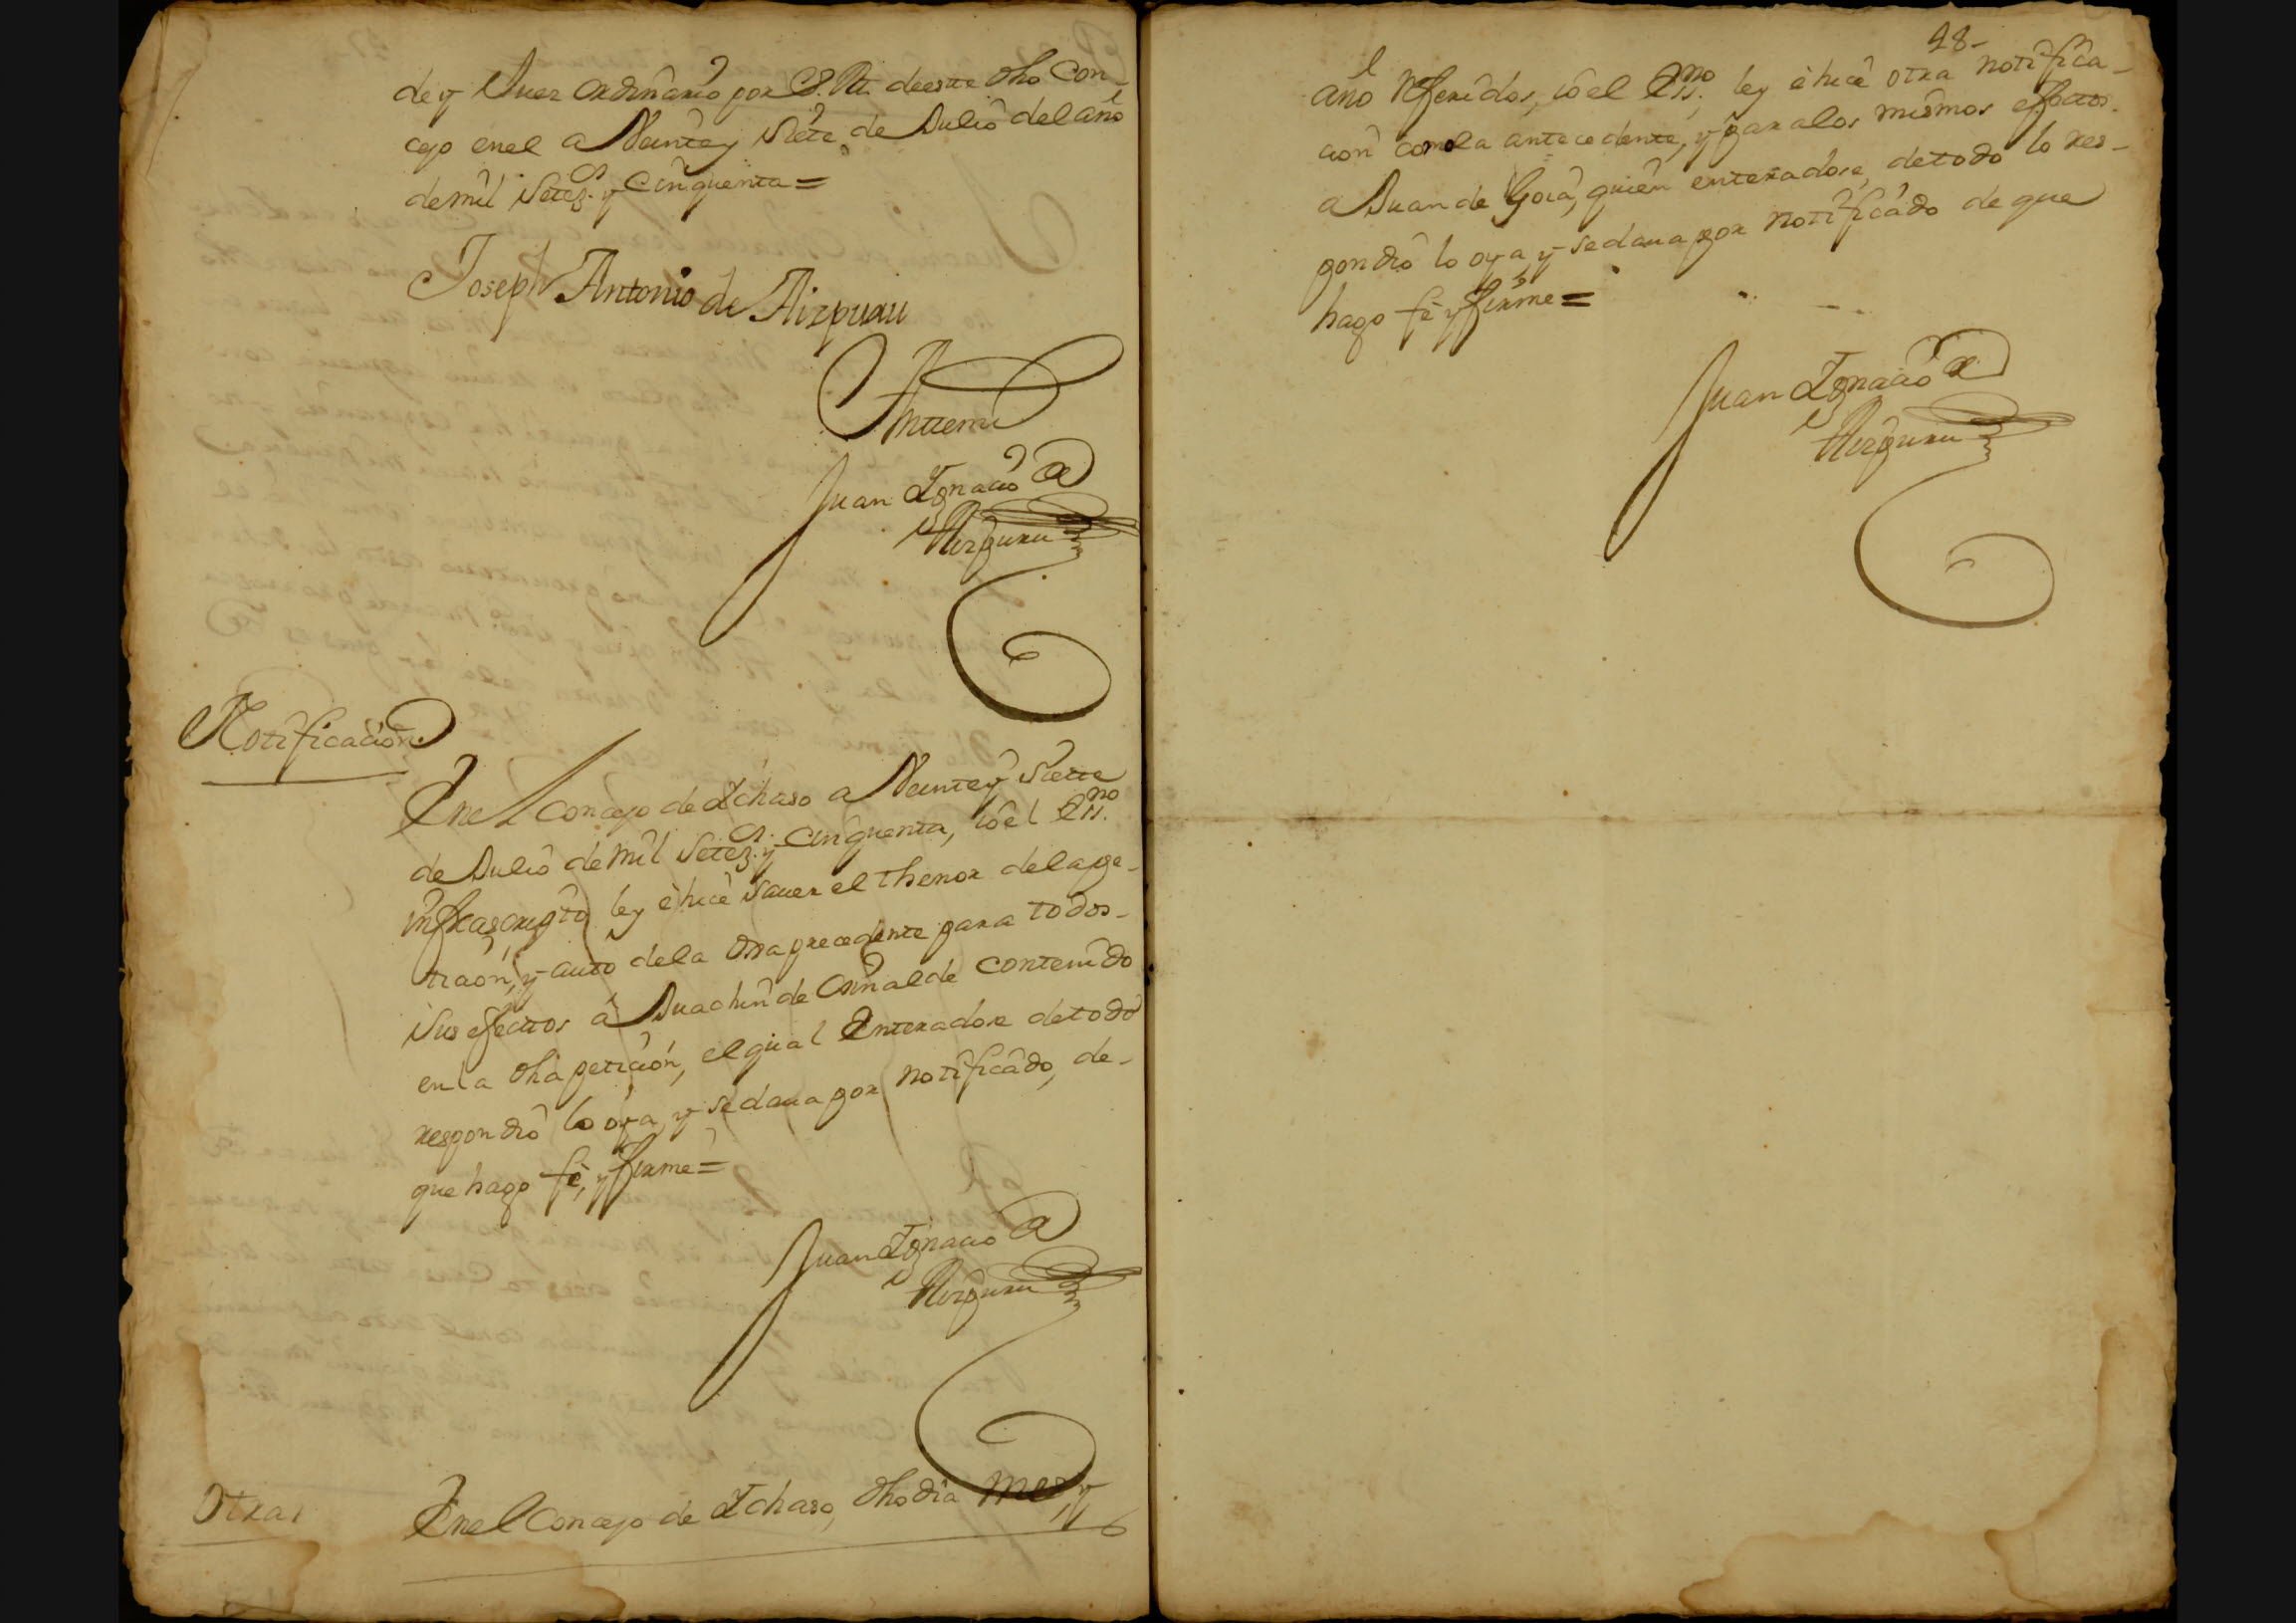 de y Juez ordinario por S. M. deeste dho Con-
cejo enel a Veintey Siete de Julio del año
demil Setez.s y Cinquenta=
Joseph Antonio de Aizpuru
Anttemi
Juan Ignacio de
Aizpuru
Notificacion
Enel Concejo de Ichaso a Veintey Siette
de Julio de mil Setez.s y Cinquenta, io el Ess.no
infrascripto ley è hice Sauer el thenor dela pe-
tizion, y auto dela ora precedente para todos
sus efectos á Juachin de Orinalde contenido
en la dha peticion, el qual Enteradose detodo
respondió lo oya, y sedaua por notificado, de-
que hago fè, y firme=
Juan Ignacio de
Aizpuru
Otra
Enel Concejo de Ichaso, dho dia mes, y
48-
año Referidos, io el Ess.no ley è hice otra notifica-
cion como la antecedente, y para los mismos efectos
a Juan de Goia, quien enteradose, detodo lo res-
pondió lo oya, y sedaua por notificado de que
hago fè y firme=
Juan Ignacio de
Aizpuru